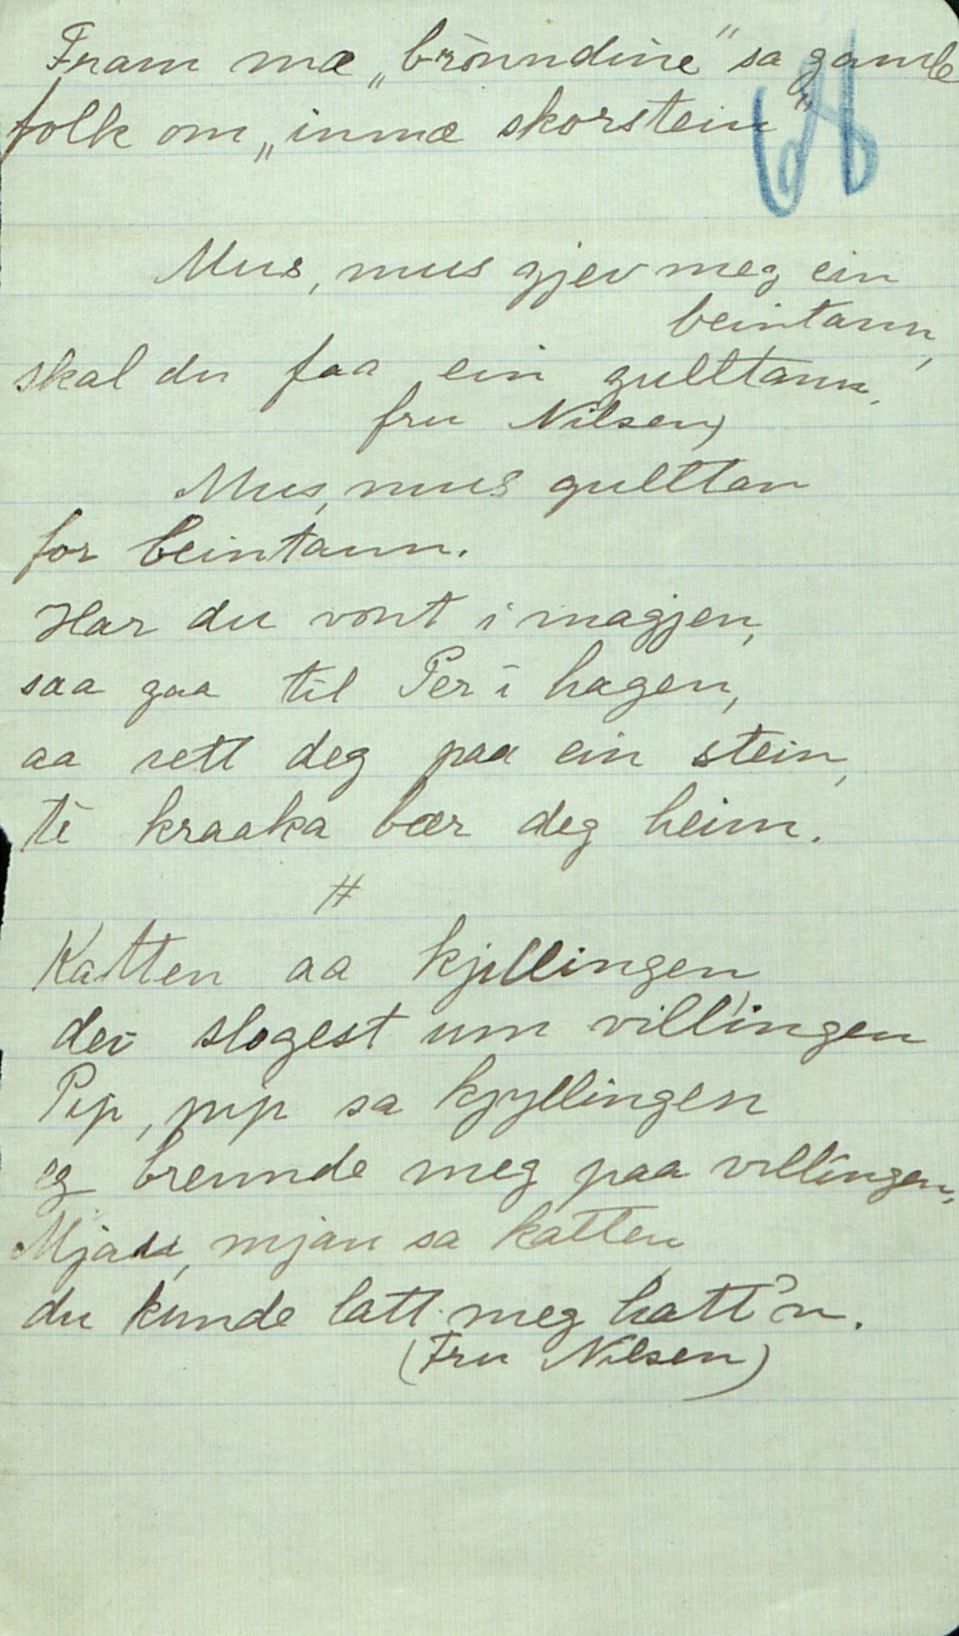 Fram mæ „brönndine" sa gamle
folk om „inmæ skorstein"
Mus, mus gjev meg ein
beintann,
skal du faa ein gulltann.
fru Nilsen)
Mus, mus gulltan
for beintann.
Har du vont i magjen,
saa gaa til Per i hagen,
aa sett deg paa ein stein,
te kraaka bær deg heim.
#
Katten aa kjillingen
dei slogest um villingen
Pip, pip sa kjyllingen
eg brennde meg paa villingen.
Mjau, mjau sa katten
du kunde latt meg hatt'n.
(Fru Nilsen)